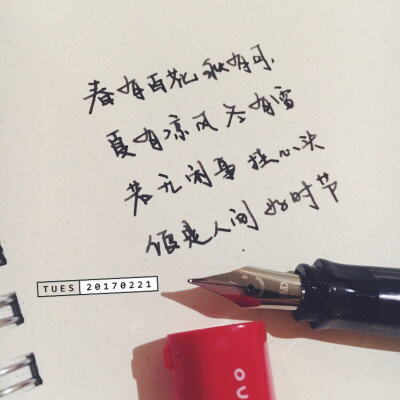 春有百花秋有月.
夏有凉风冬有雪
若无闲事挂心头
便是人间好时节
TUES 20170221